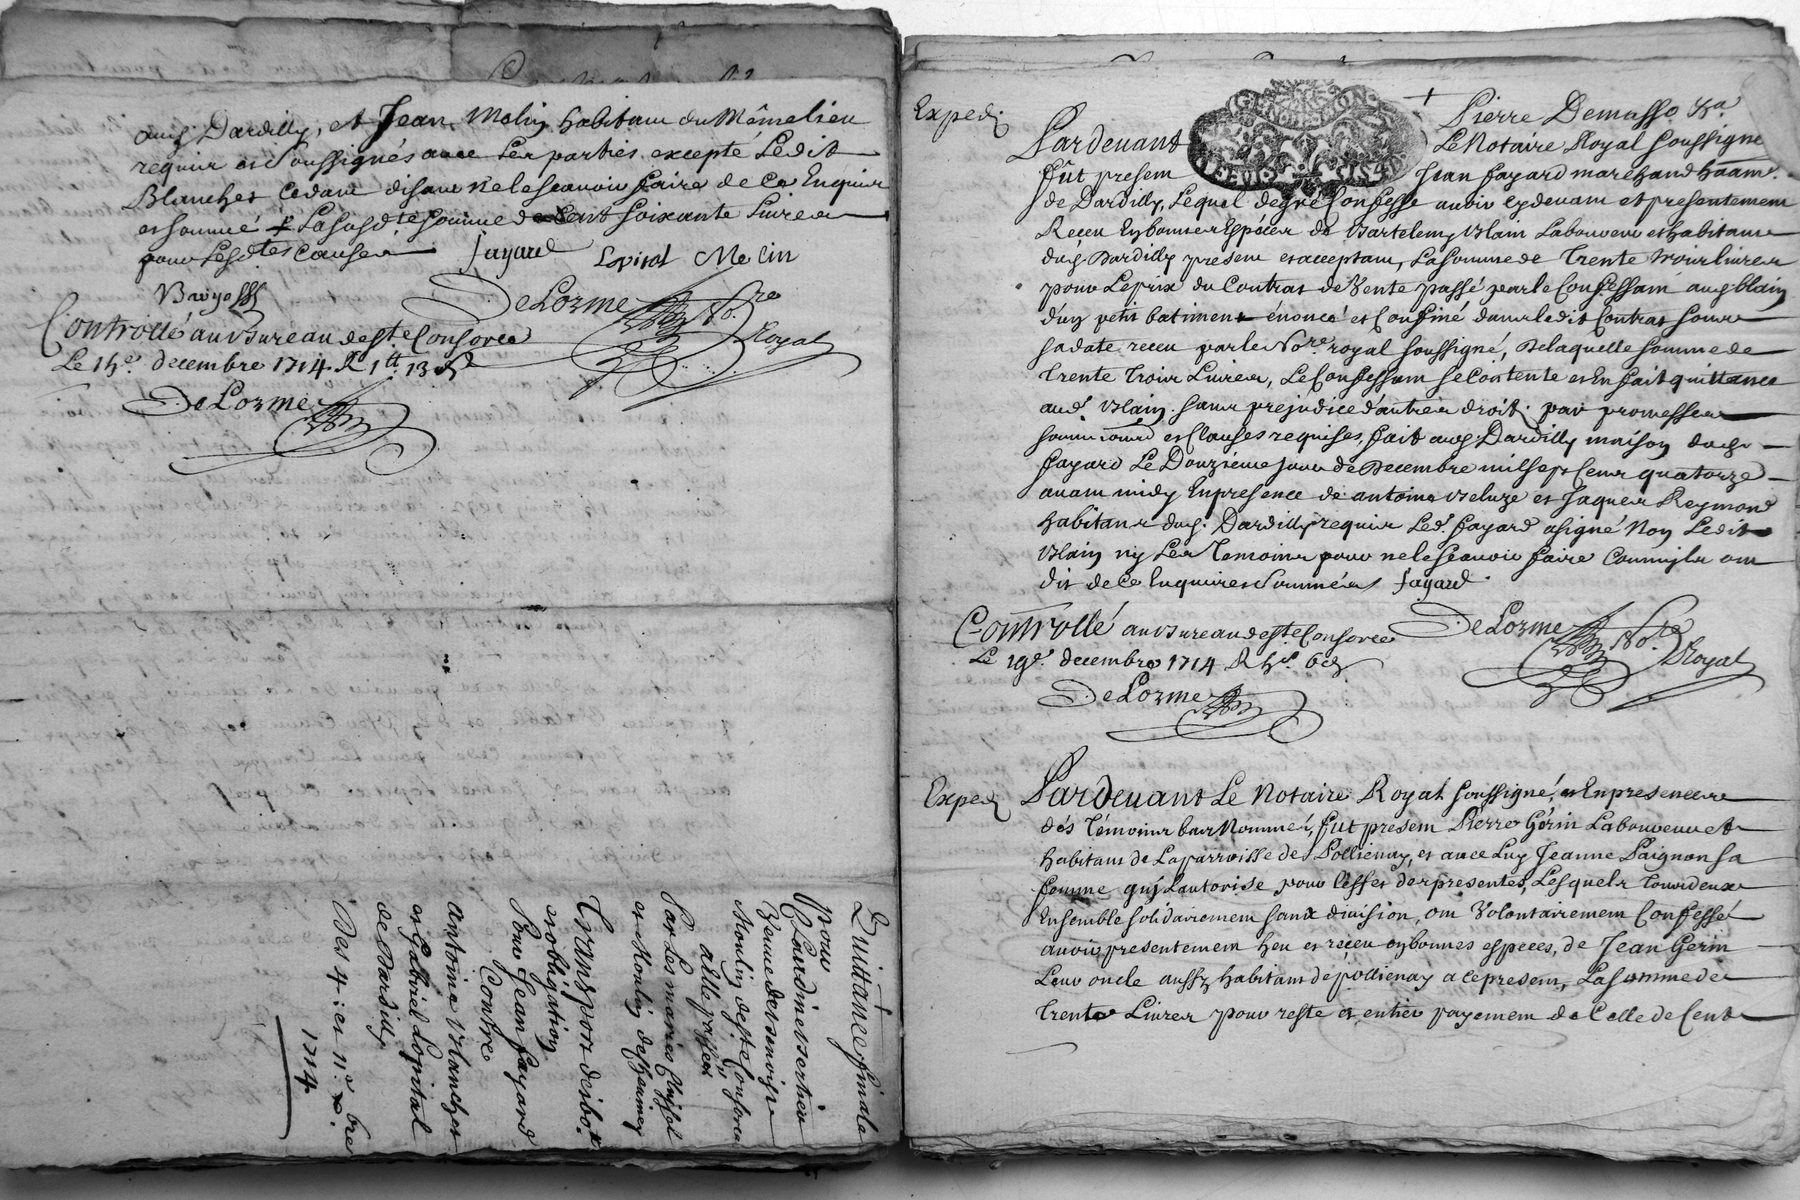 aud. Dardilly, et Jean Melin habitant du Même lieu
requis et soussignés avec les parties excepté Ledit
Blanchet cedant disant ne le scavoir faire de ce Enquis
et sommé + La susdte somme de cent soixante Livres
pour Lesdtes causes Fayard Lopital Melin
DeLorme No.re Royal
Controllé au Bureau de ste Consorce
Le 15e. decembre 1714 R 1tt 13 s
DeLorme
Quittance finale
pour
Claudine
Veuve
Moulin de ste Consorce
a elle passée
Par Les mariés
et Moulin
Transport
et obligation
Pour Jean Fayard
Contre
antoine Blanchet
et Gabriel Lopital
de Dardilly
Des 4 et 11e. xbre
1714
Exped.
Pierre Demasso
Pardevant Le Notaire Royal soussigné
fût present Jean Fayard marchand
de Dardilly, Lequel de gré Confesse avoir cydevant et presentement
Receu En bonnes Espéces de Bartelemy Blain Laboureur et habitant
dud. Dardilly present et acceptant, La somme de Trente trois livres
pour Le prix du Contrat de Vente passé par le Confessant aud. blain
d'un petit batiment énoncé et Confiné dans ledit Contrat sous
sa date receu par le No.re royal soussigné, De laquelle somme de
Trente Trois Livres, Le Confessant se Contente et En fait quittance
aud. Blain sans prejudice d'autres droits par promesses
soumissions et Clauses requises, fait aud. Dardilly maison dud.
Fayard Le Douzième jour de Decembre mil sept Cent quatorze
avant midy En presence de antoine Beluze et Jaques Reymond
habitans dud. Dardilly requis Led. Fayard a signé Non Ledit
Blain ny Les Temoins pour ne le scavoir faire Comm'ils ont
dit de ce Enquis et sommés Fayard
DeLorme No.re Royal
Controllé au Bureau de ste Consorce
Le 19e. decembre 1714 R
DeLorme
Exped.
Pardevant Le Notaire Royal soussigné, et En presence
dés Témoins bas Nommés, fut present Pierre Gérin Laboureur et
habitant de La parroisse de Pollienay, et avec Luy Jeanne Paignon sa
femme quj L'autorise pour L'effet des presentes, Lesquels Tous deux
Ensemble solidairement sans division, ont Volontairement Confessé
avoir presentement heu et receu en bonnes especes, de Jean Gerin
Leur oncle aussy habitant de pollienay a ce present, La somme de
Trente Livres pour reste et entier payement de Celle de Cent